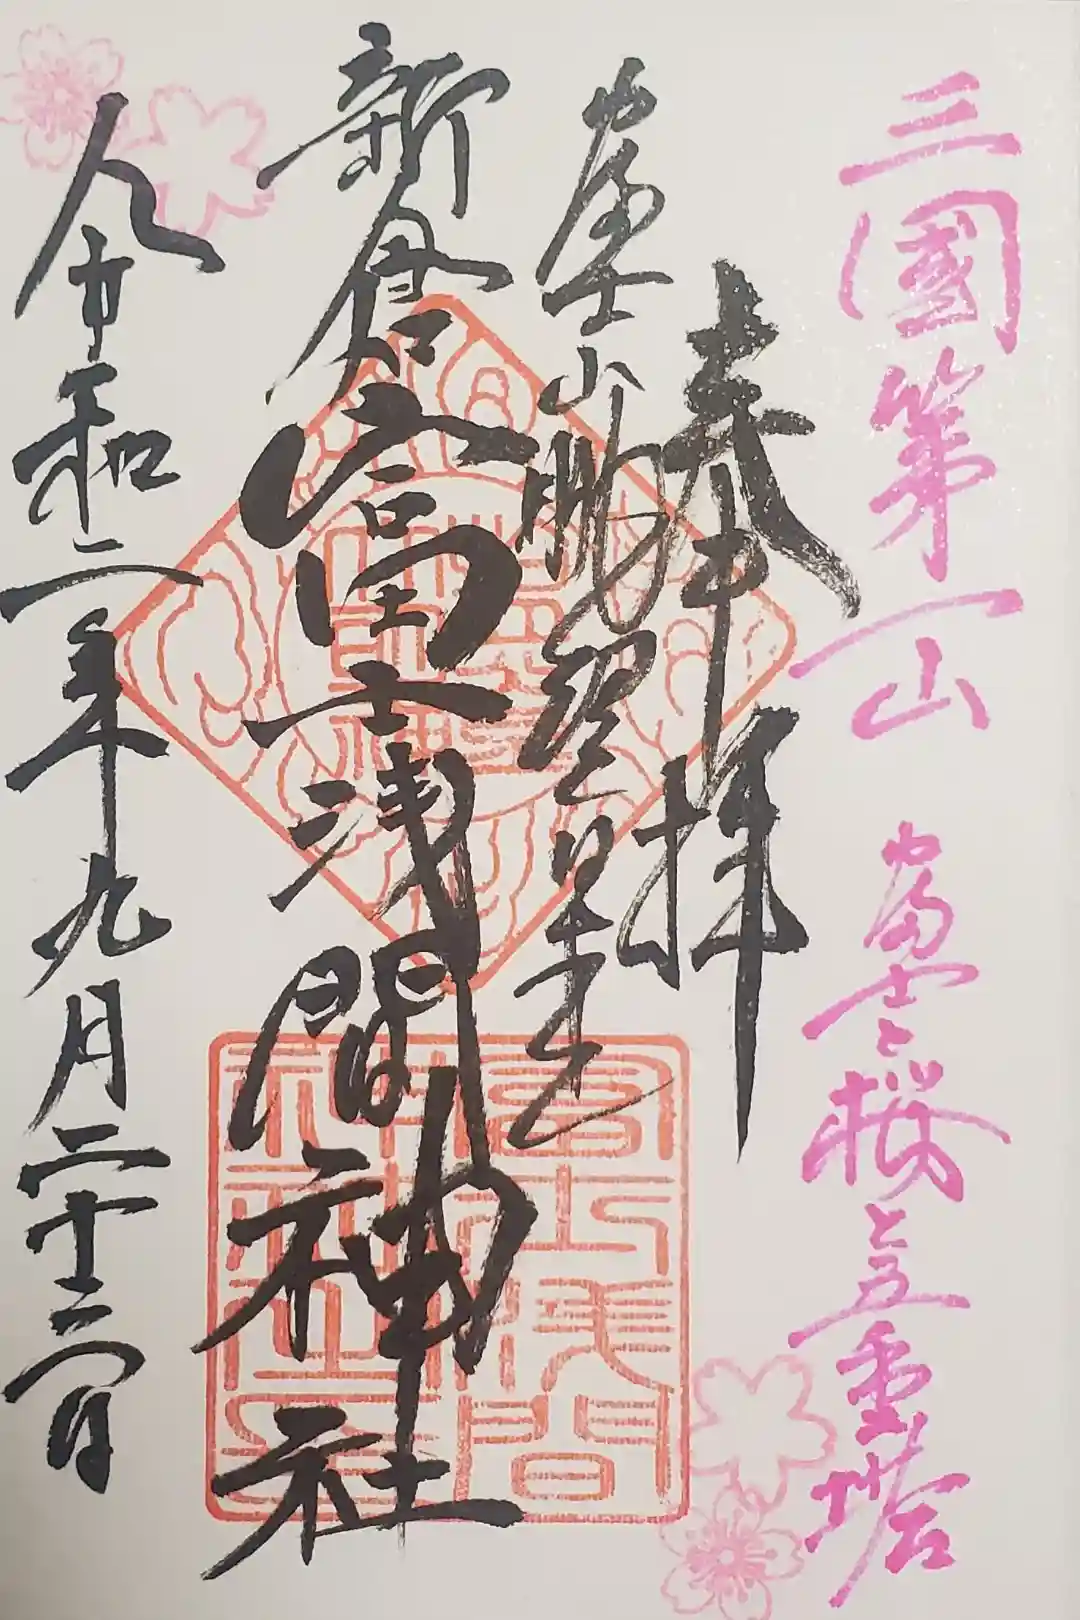 三國第一山 富士と桜と五重塔
奉拝
富士山
新倉富士浅間神社
令和二年九月二十二日
冨士浅間
神社之